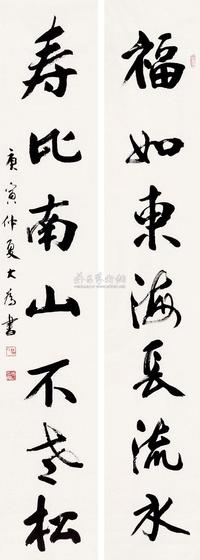 福如東海長流水
寿比南山不老松
庚寅仲夏大为書